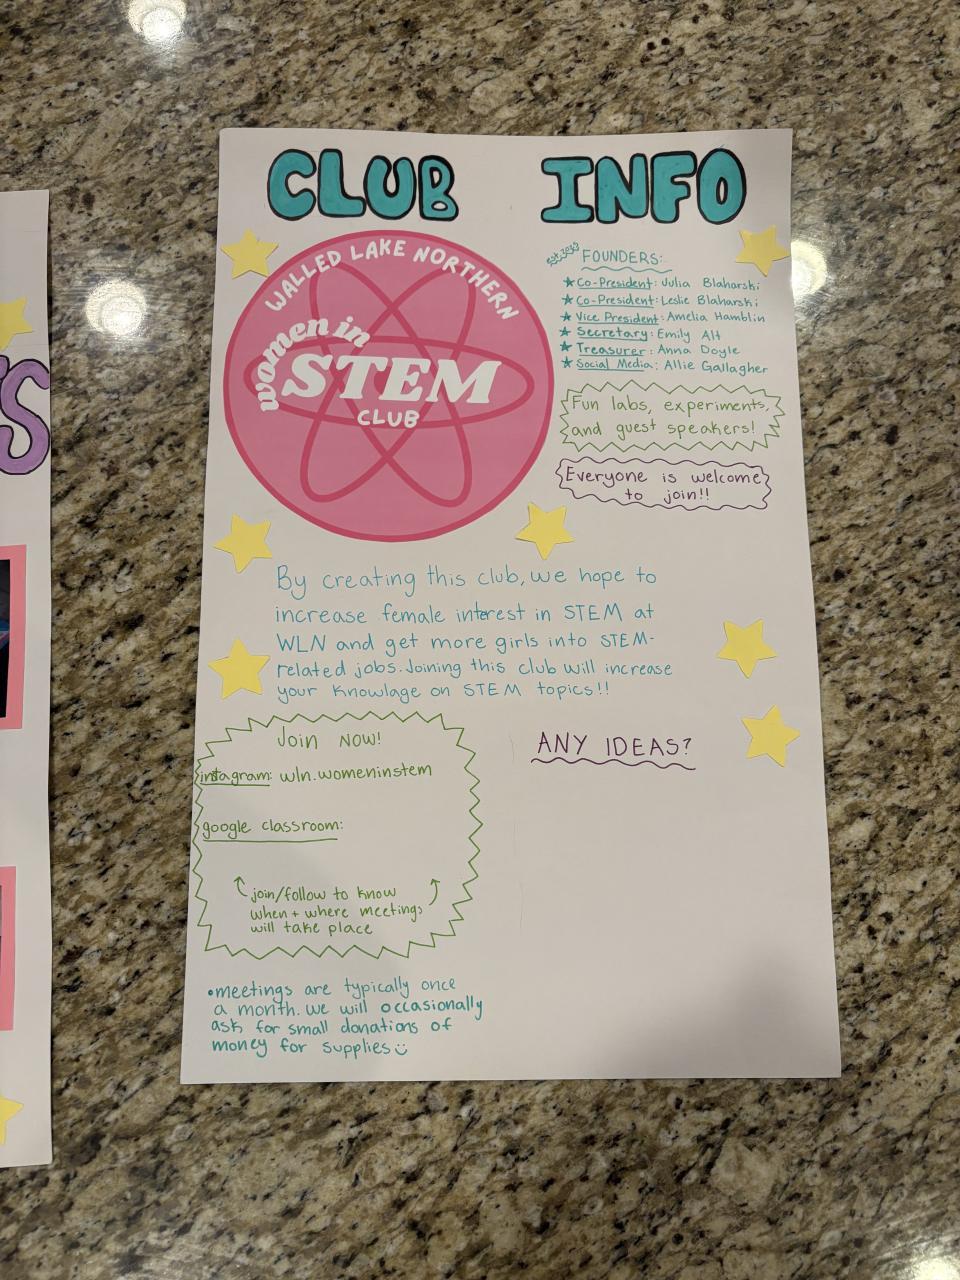 CLUB INFO
WALLED LAKE NORTHERN
women in
STEM
CLUB
est. 2023 FOUNDERS:
★ Co-President: Julia Blaharski
★ Co-President: Leslie Blaharski
★ Vice President: Amelia Hamblin
★ Secretary: Emily Alt
★ Treasurer: Anna Doyle
★ Social Media: Allie Gallagher
Fun labs, experiments,
and guest speakers!
Everyone is welcome
to join!!
By creating this club, we hope to
increase female interest in STEM at
WLN and get more girls into STEM-
related jobs. Joining this club will increase
your knowlage on STEM topics!!
Join NOW!
instagram: wln.womeninstem
google classroom:
join/follow to know
when + where meetings
will take place
ANY IDEAS?
•meetings are typically once
a month. we will occasionally
ask for small donations of
money for supplies
S